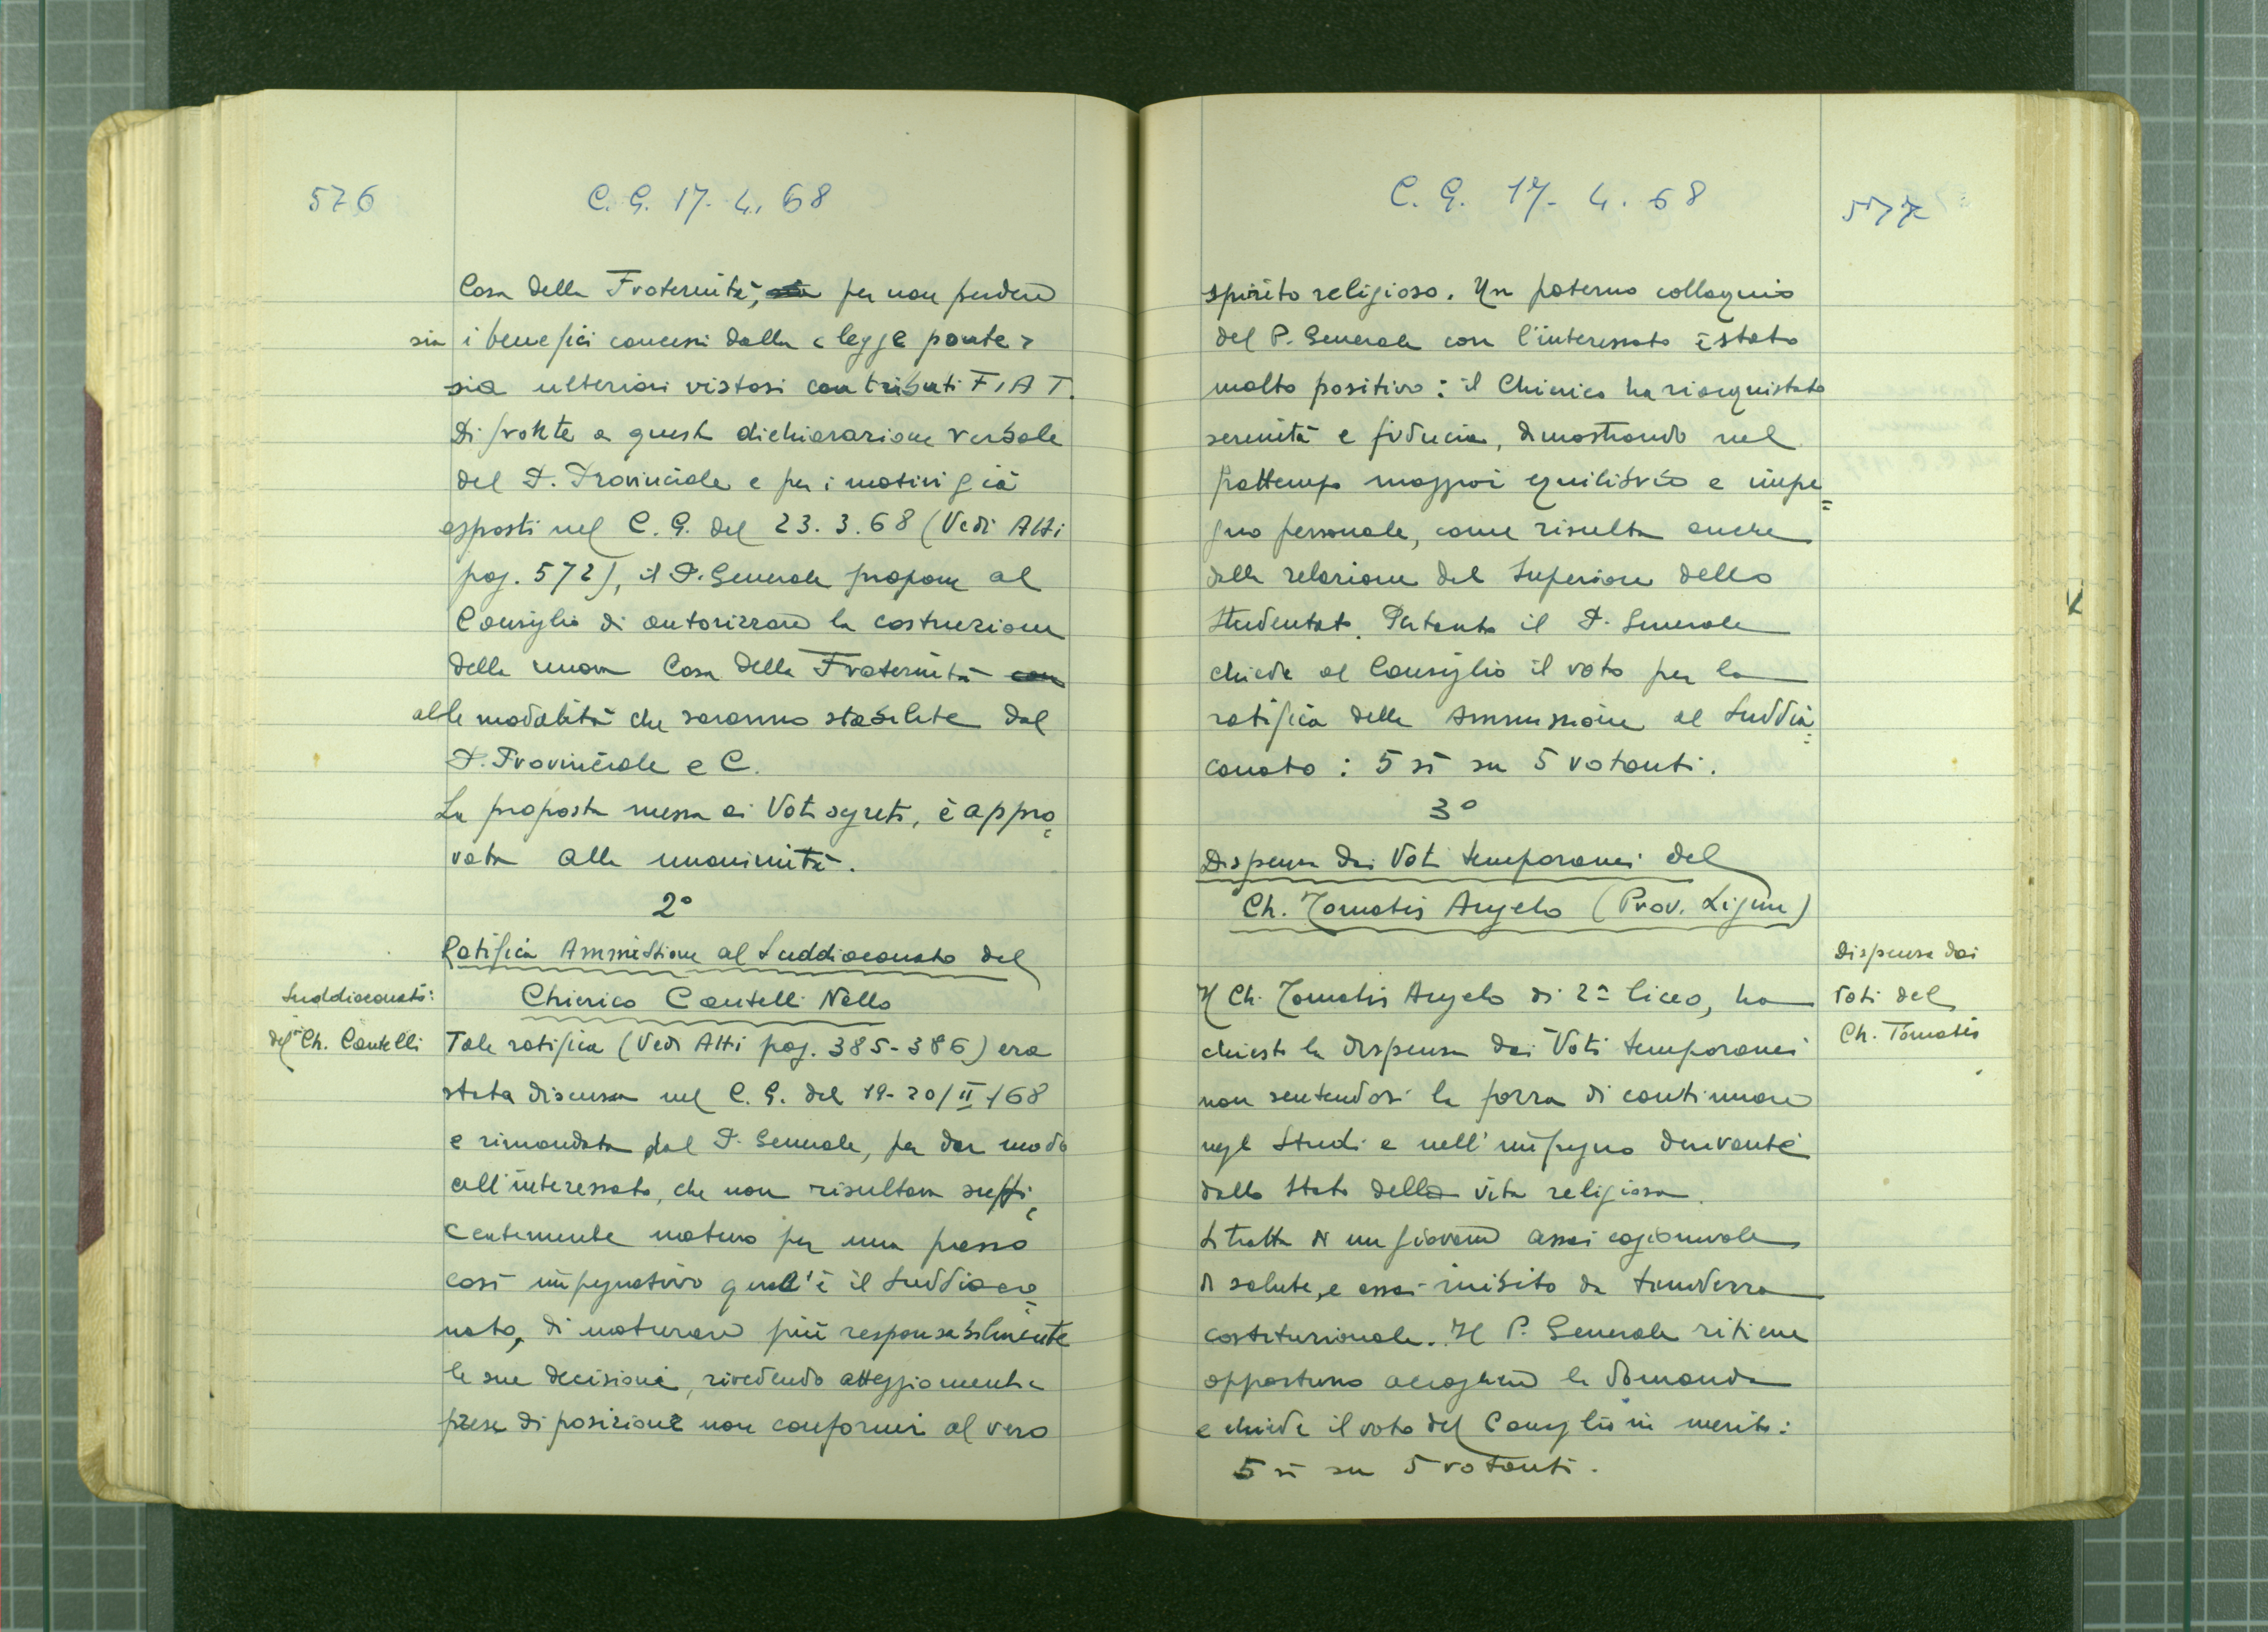 576
C. G. 17. 4. 68
Casa della Fraternità, per non perdere
sia i benefici concessi dalla "legge ponte"
sia ulteriori vistosi contributi FIAT.
Di fronte a questa dichiarazione verbale
del P. Provinciale e per i motivi già
esposti nel C. G. del 23. 3. 68 (Vedi Atti
pag. 572), il P. Generale propone al
Consiglio di autorizzare la costruzione
della nuova Casa della Fraternità con
alle modalità che saranno stabilite dal
P. Provinciale e C.
La proposta messa ai Voti segreti, è appro
vata alla unanimità.
2°
Ratifica Ammissione al Suddiaconato del
Chierico Cantelli Nello
Suddiaconato:
del Ch. Cantelli
Tale ratifica (Vedi Atti pag. 385-386) era
stata discussa nel C. G. del 19-20/II/68
e rimandata dal P. Generale, per dar modo
all'interessato, che non risultava suffi
centemente maturo per una presso
così impegnativo qual'è il Suddiaco
nato, di maturare più responsabilmente
le sue decisioni, rivedendo atteggiamenti e
prese di posizione non conformi al vero
C. G. 17. 4. 68
577
spirito religioso. Un paterno colloquio
del P. Generale con l'interessato è stato
molto positivo: il Chierico ha riacquistato
serenità e fiducia, dimostrando nel
frattempo maggior equilibrio e impe=
gno personale, come risulta anche
dalla relazione del Superiore dello
Studentato. Pertanto il P. Generale
chiede al Consiglio il voto per la
ratifica della Ammissione al Suddia=
conato: 5 sì su 5 votanti.
3°
Dispensa dai Voti temporanei del
Ch. Tomatis Angelo (Prov. Ligure)
Dispensa dai
Voti del
Ch. Tomatis
Il Ch. Tomatis Angelo di 2ª liceo, ha
chiesto la dispensa dai Voti temporanei
non sentendosi la forza di continuare
negli Studi e nell'impegno derivante
dallo Stato della vita religiosa.
Si tratta di un giovane assai cagionevole
di salute, e assai inibito da timidezza
costituzionale. Il P. Generale ritiene
opportuno accogliere la domanda
e chiede il voto del Consiglio in merito:
5 sì su 5 votanti.